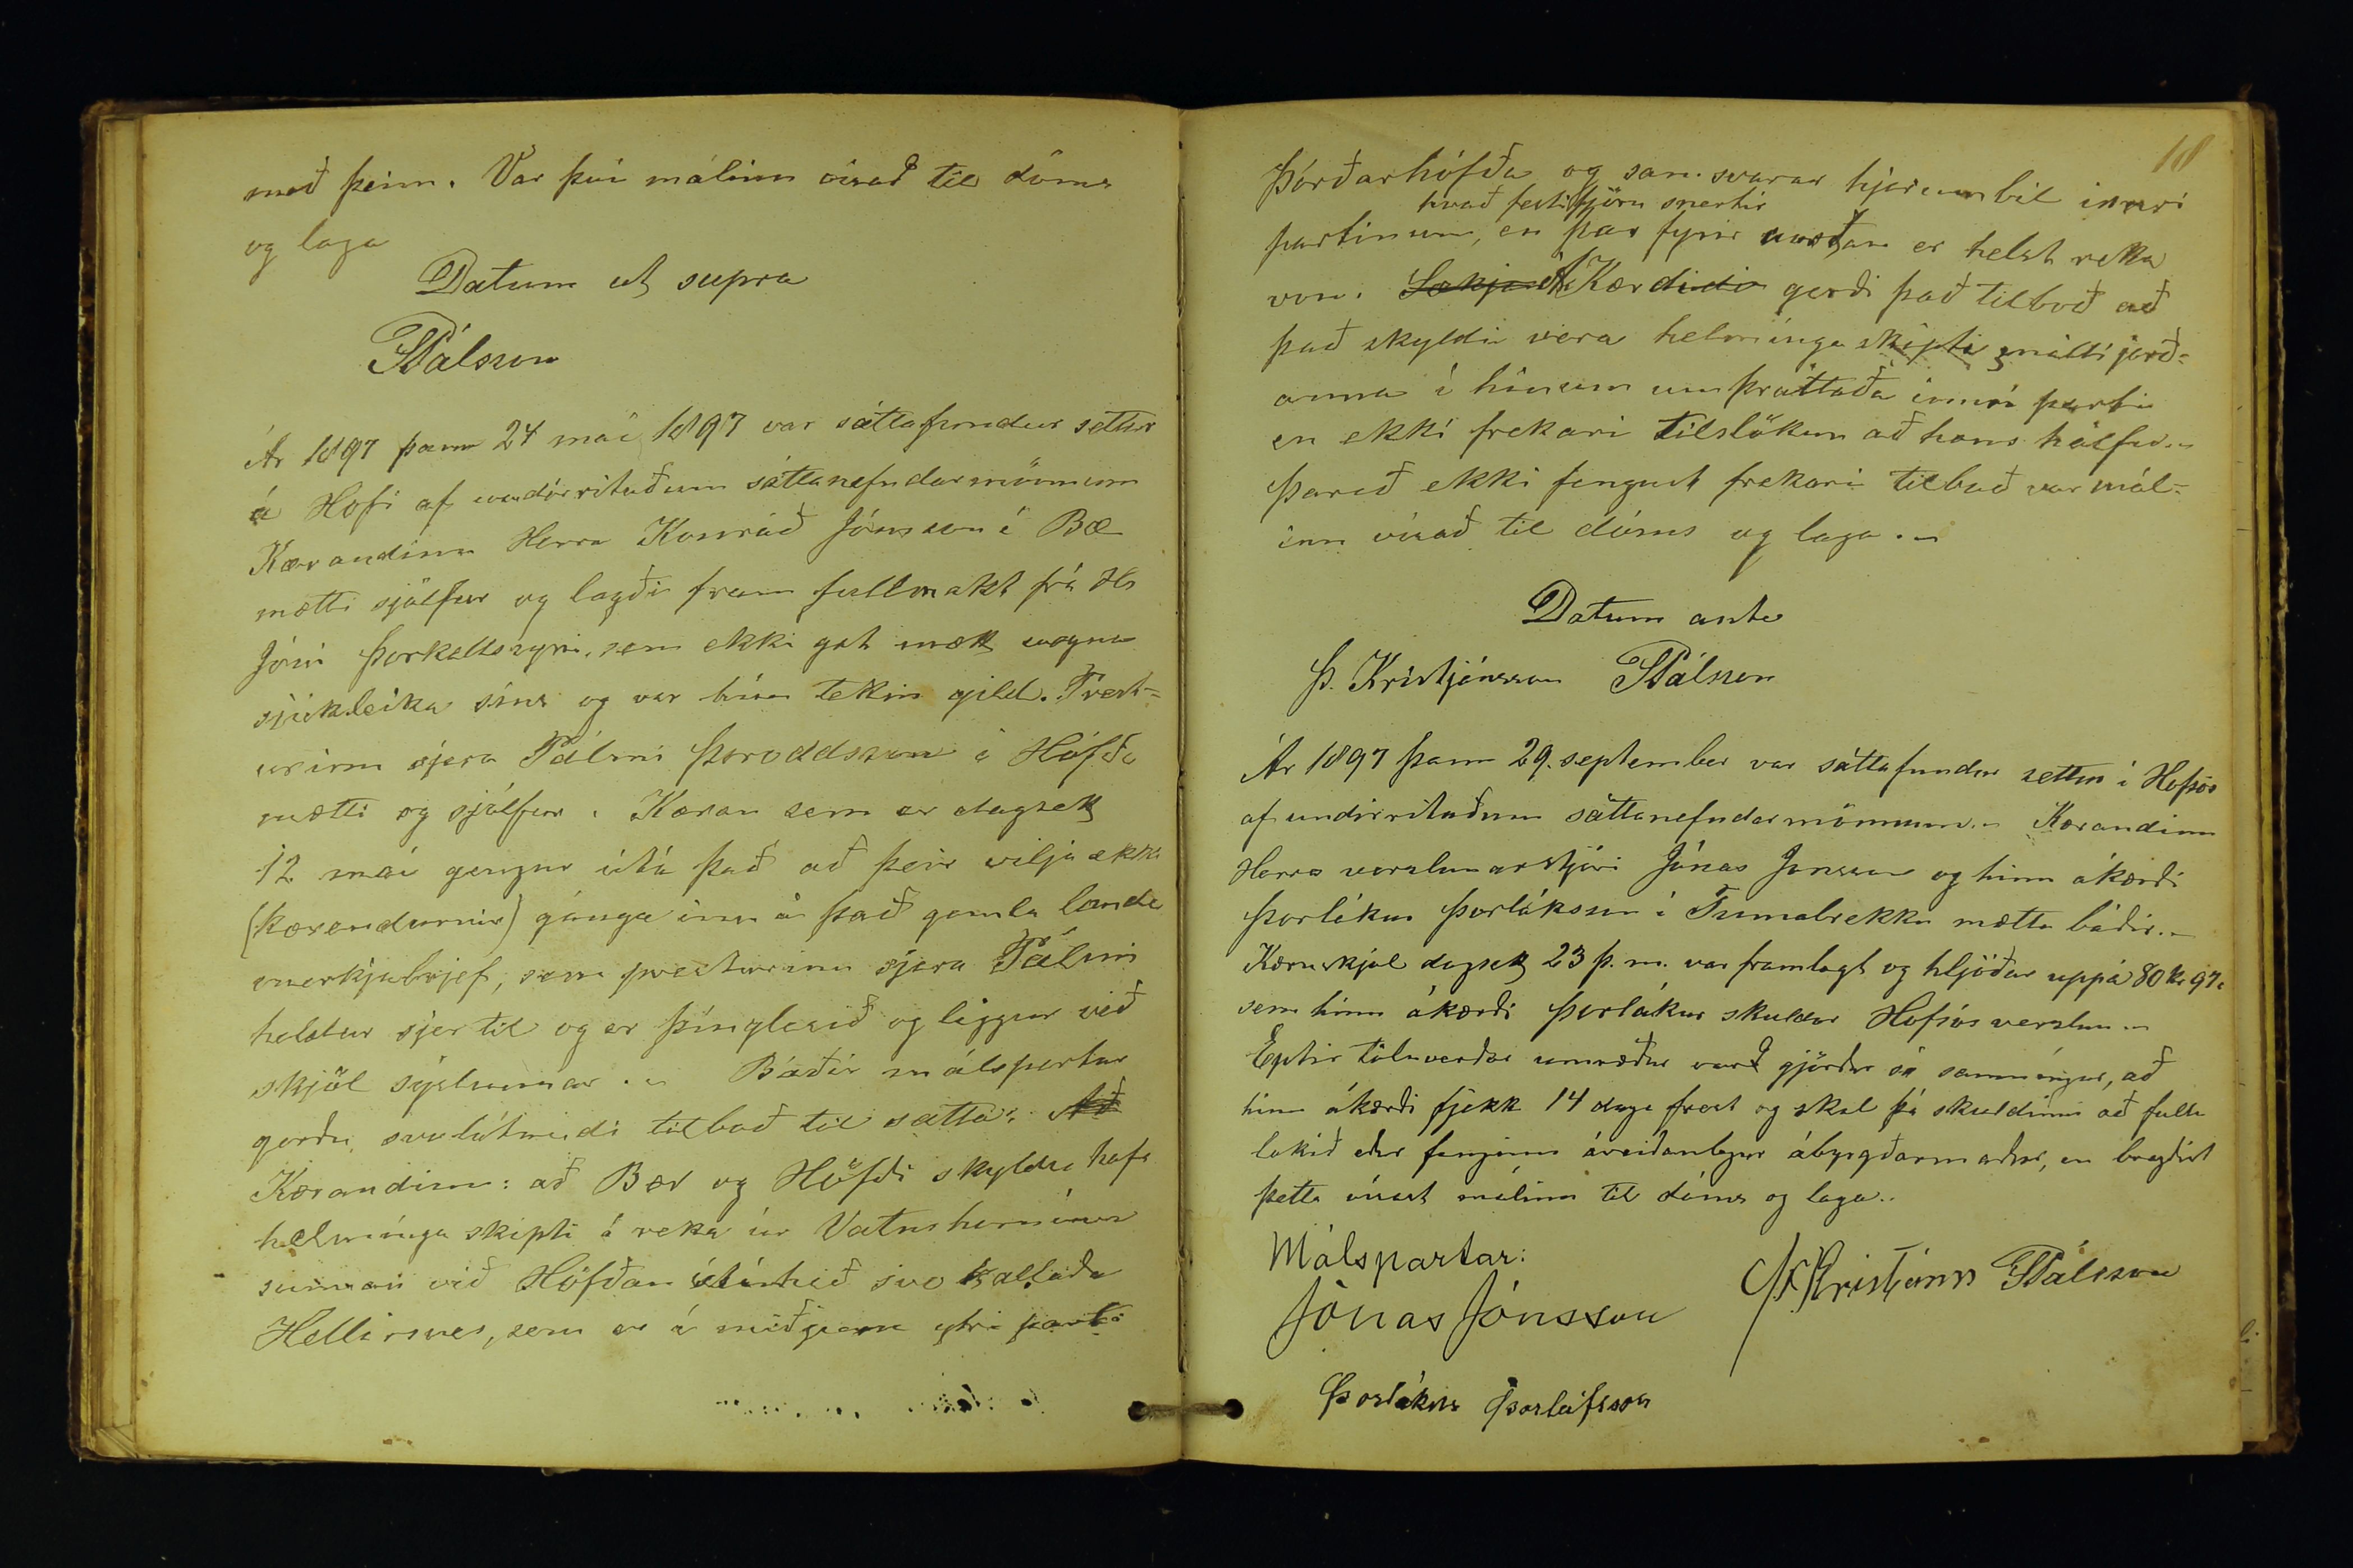 með þeim. Var því málinu vísað til dóms
og laga
Datum ut supra
PPálsson
Ár 1897 þann 24 maí 1897 var sáttafundur settur
á Hofi af undirrituðum sáttanefndarmönnum
Kærandinn Herra Konráð Jónsson í Bæ
mætti sjálfur og lagði fram fullmakt frá Hr
Jóni Þorkellssyni, sem ekki gat mætt vegna
sjúkleika síns og var hún tekin gild. Prest-
urinn sjera Pálmi Þóroddsson á Höfða
mætti og sjálfur. Kæran sem er dagsett
12 maí gengur útá það að þeir vilja ekki
(kærendurnir) gánga inn á það gamla landa
merkjabrjef, sem presturinn sjera Pálmi
heldur sjer til og er þínglesið og liggur við
skjöl sýslunnar. Báðir málspartar
gerðu svolátandi tilboð til sátta: Að
Kærandinn: að Bær og Höfði skyldu hafa
helmínga skipti á reka úr Vatnshorninu
sunnan við Höfðan útí svo kallaða
Hellisnes, sem er á miðjum ytri parti
18
Þórðarhöfða og samsvarar hjerumbil innri
hvað festifjöru snertir
partinum, en þar fyrir norðan er helst reka
von. Kærdi gerði það tilboð að
það skyldi vera helmínga skipti milli jarð-
anna í hinum umþráttaða innri parti
en ekki frekari tilslökun að hans hálfu.
Þareð ekki fengust frekari tilboð var mál-
inu vísað til dóms og laga.
Datum ante
Þ. Kristjánsson PPálsson
Ár 1897 þann 29. september var sáttafundur settur í Hofsós
af undirrituðum sáttanefndarmönnum. Kærandinn
Herra verslunarstjóri Jónas Jonsson og hinn ákærði
Þorlákur Þorláksson í Tumabrekku mættu báðir.
Kæruskjal dagsett 23 þ. m. var framlagt og hljóðar uppá 80 kr 97.
sem hinn ákærði Þorlákur skuldar Hofsós verslun.
Eptir töluverðar umræður varð gjörður sá samníngur, að
hinn ákærði fjekk 14 daga frest og skal þá skuldinni að fullu
lokið eður fenginn áreiðanlegur ábyrgðarmaður, en bregðist
þetta vísast málinu til dóms og laga..
Málspartar:
Jónas Jónsson
Kristjánss PPálsson
Þorlákur Þorláksson